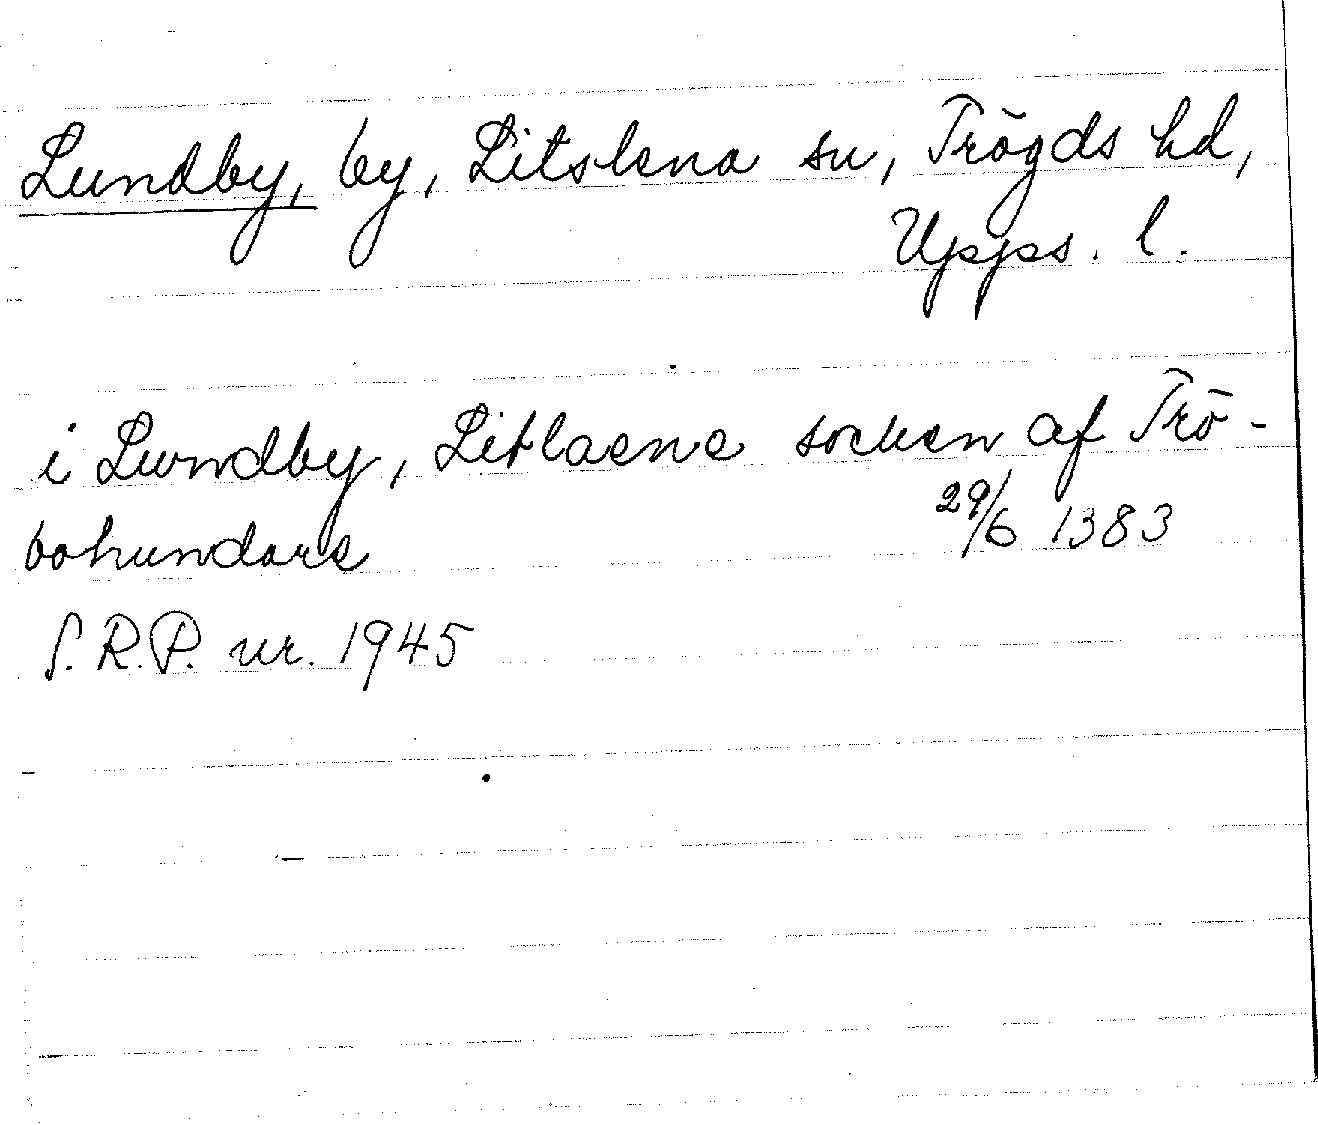 Lundby, by, Litslena sn, Trögds hd,
Upps. l.
i Lwndby, Litlaene socken af Trö-
bohundare
29/6 1383
S.R.P. nr. 1945